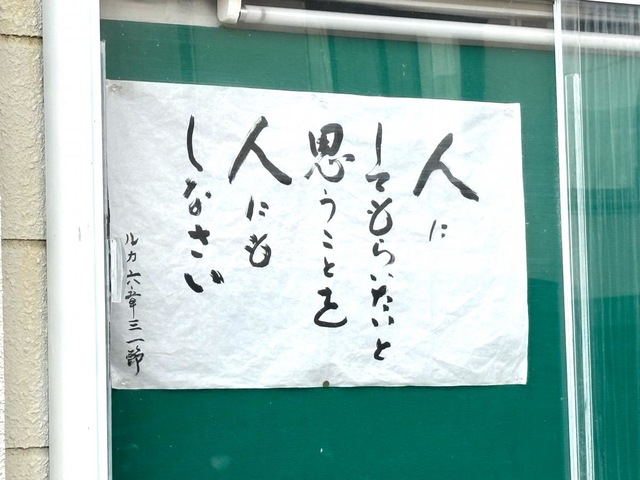 人に
してもらいたいと
思うことを
人にも
しなさい
ルカ六章三一節